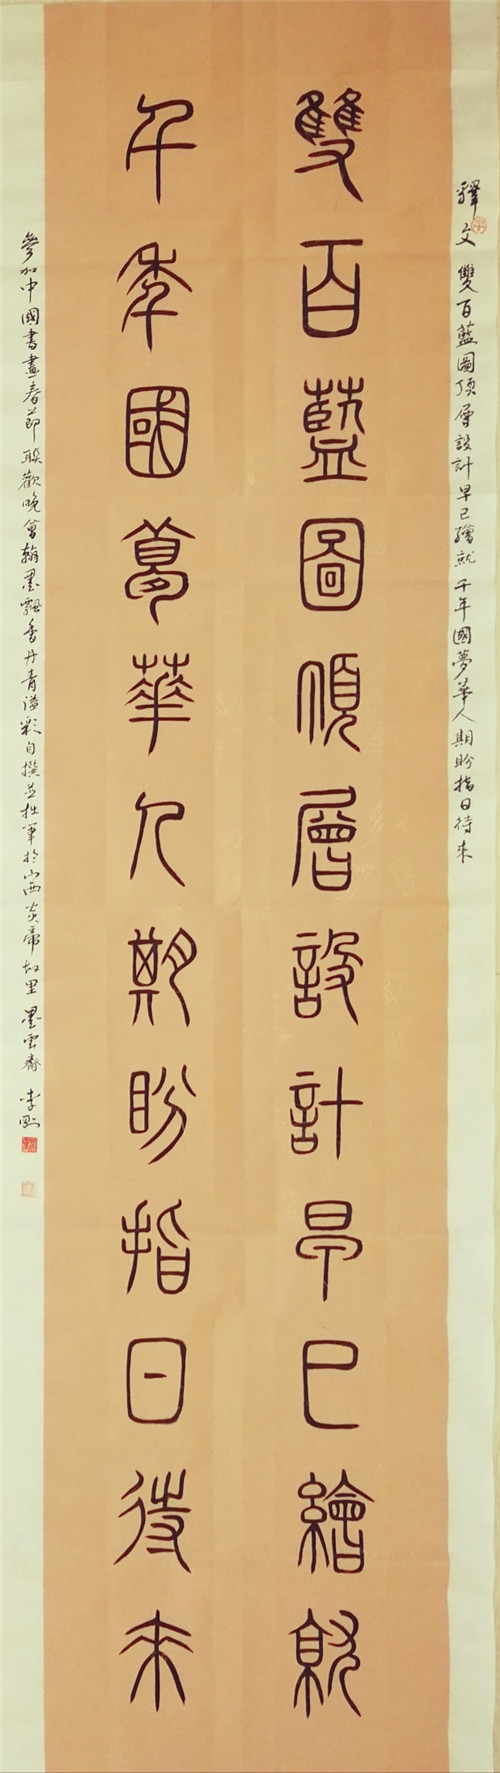 釋文 雙百藍圖頂層設計早已繪就 千年國夢華人期盼指日待來
雙百藍圖頂層設計早已繪就
千年國夢華人期盼指日待來
參加中國書畫春節聯歡晚會翰墨飄香丹青溢彩自撰並拙筆於山西炎帝故里 墨雲齋 李剛